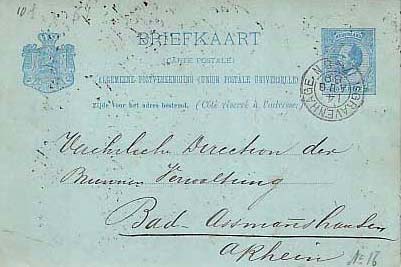 108
BRIEFKAART
(CARTE POSTALE)
ALGEMEENE POSTVEREENIGING (UNION POSTALE UNIVERSELLE)
Zijde voor het adres bestemd. (Côté réservé à l'adresse)
'SGRAVENHAGE
Verehrliche Direction der
Brunnen Verwaltung
Bad-Assmanshausen
a Rhein